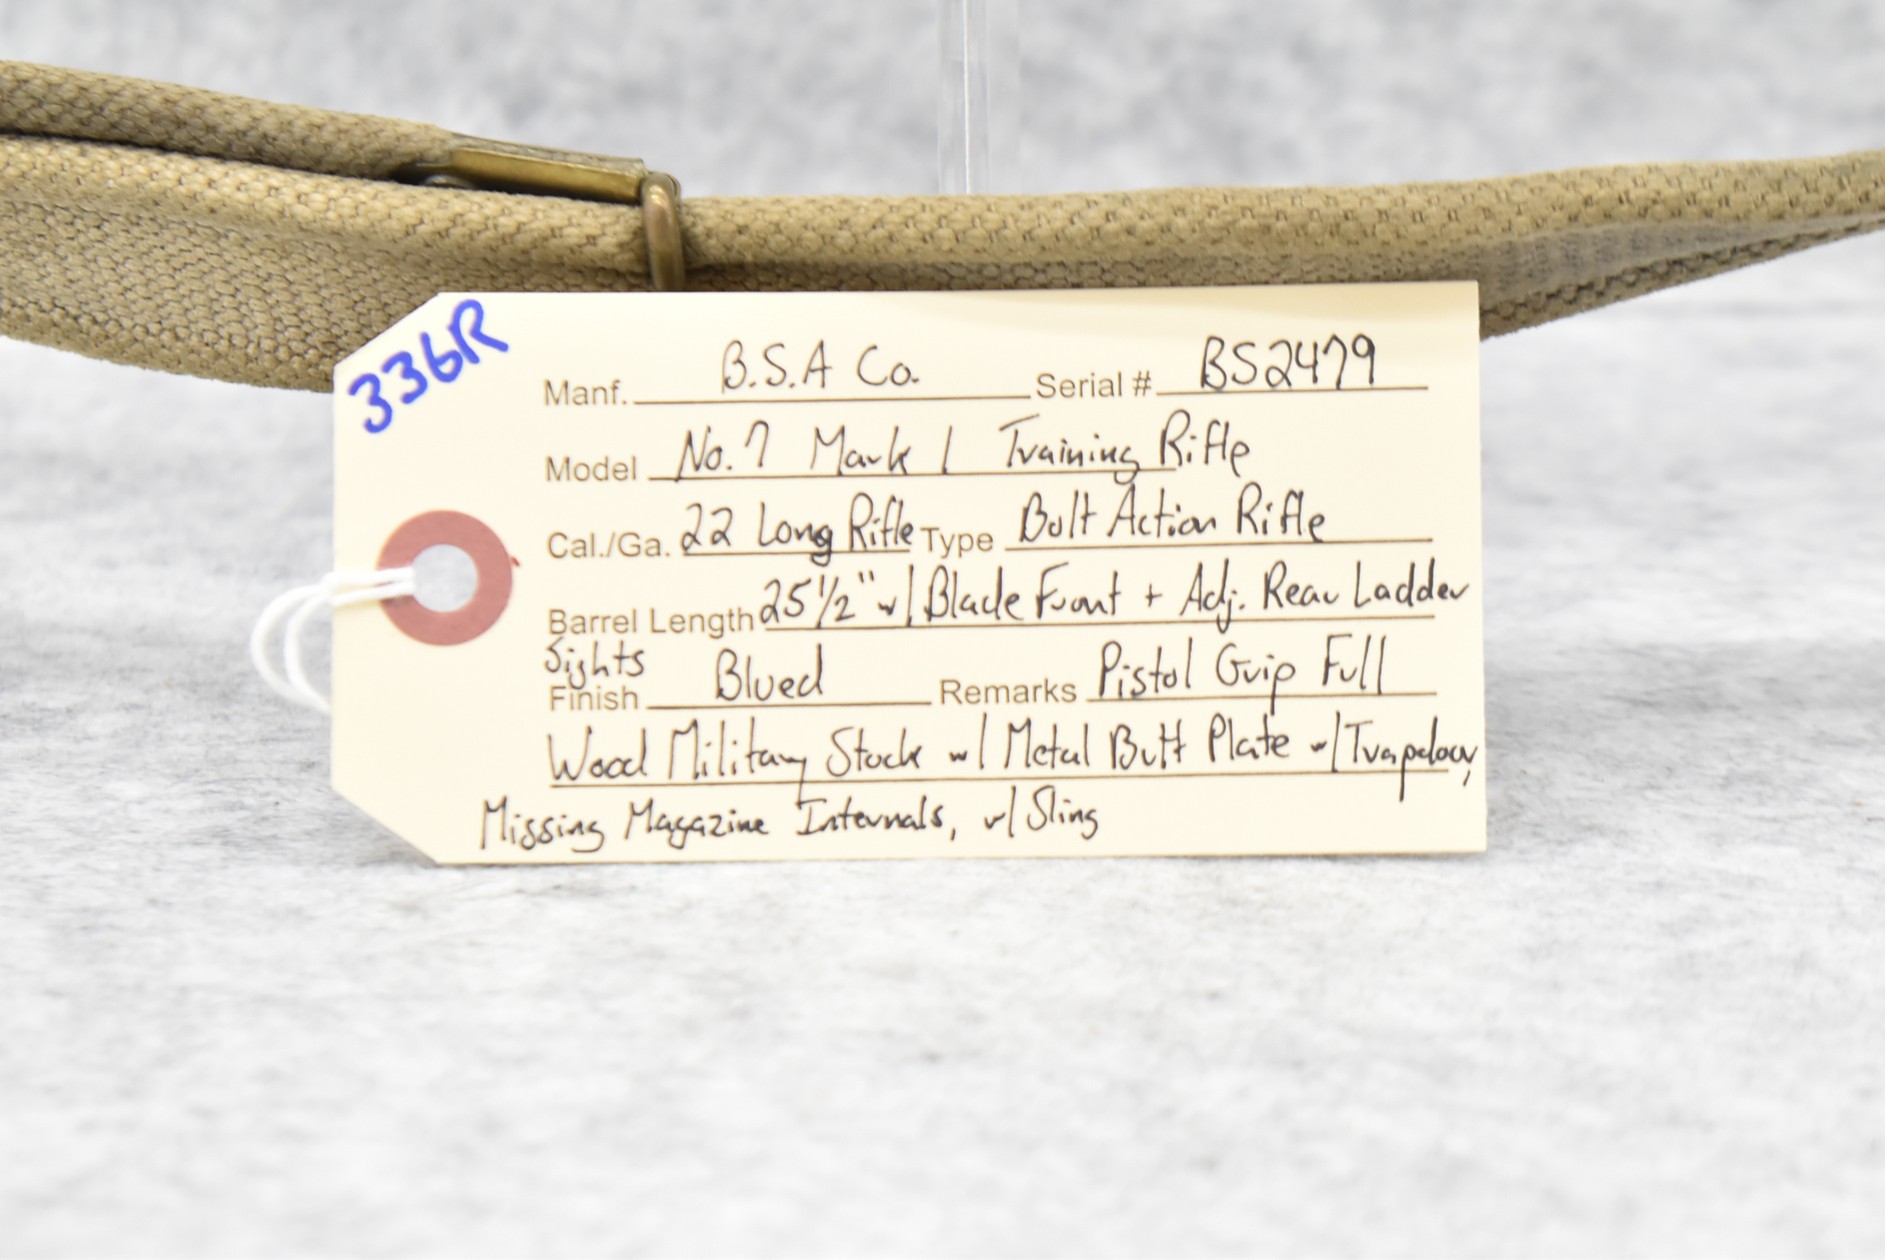 336R
Manf. B.S.A Co. Serial # BS2479
Model No. 7 Mark 1 Training Rifle
Cal./Ga. 22 Long Rifle Type Bolt Action Rifle
Barrel Length 25 1/2" w/ Blade Front + Adj. Rear Ladder
Sights
Finish Blued Remarks Pistol Grip Full
Wood Military Stock w/ Metal Butt Plate w/ Trapdoor,
Missing Magazine Internals, w/ Sling